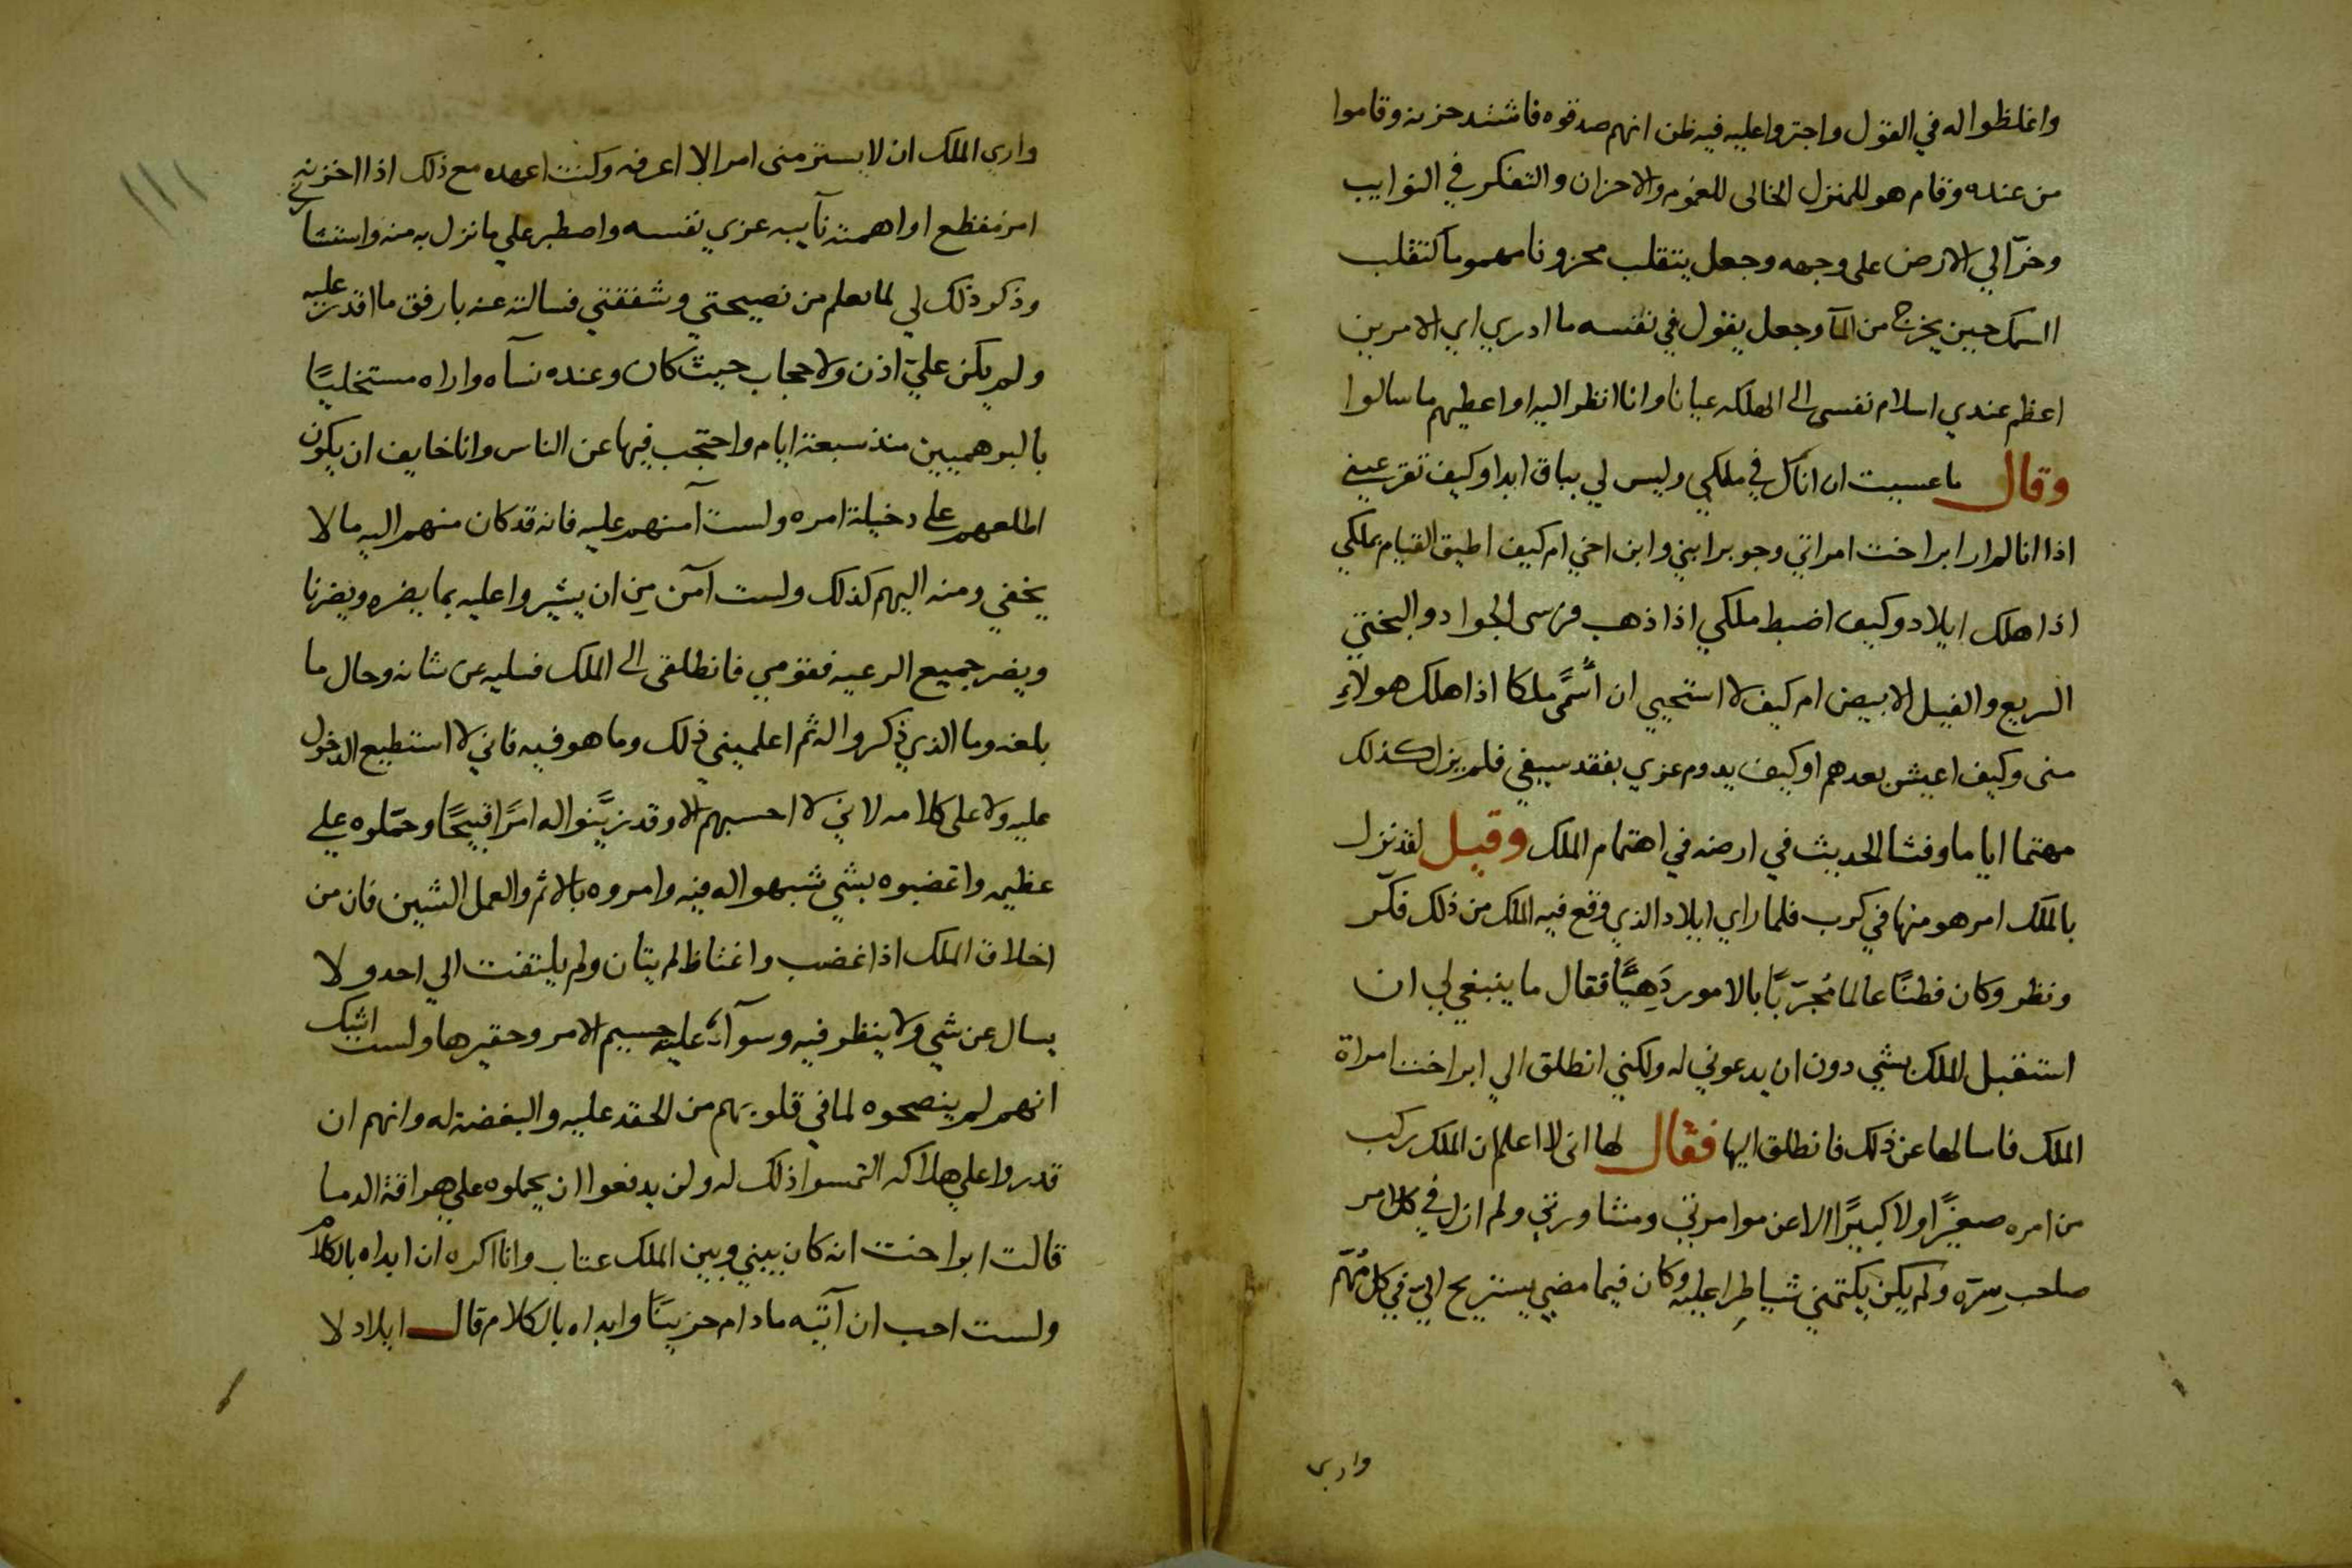 واغلظوا له في القول واجتروا عليه فيه ظن انهم صدقوه فاشتد حزنه وقاموا
من عنده وقام هو للمنزل الخالى للغموم والاحزان والتفكر في النوايب
وخرّ الي الارض على وجهه وجعل يتقلب محزونا مهموما كتقلب
السمك حين يخرج من المآ وجعل يقول في نفسه ما ادري اي الامرين
اعظم عندي اسلام نفسى الى الهلكه عيانا وانا انظر اليه او اعطيهم ما سالوا
وقال ما عسيت ان اناكل في ملكي وليس لي بباق ابدا وكيف تقر عيني
اذا انا لم ار ابراخت امراتي وجوبر ابني وابن اخي ام كيف اطيق القيام بملكي
اذا هلك ايلاد وكيف اضبط ملكي اذا ذهب فرسى الجواد والبختي
السريع والفيل الابيض ام كيف لا استحيي ان أُسَمَّى ملكا اذا هلك هولاءِ
منى وكيف اعيش بعدهم او كيف يدوم عزي بفقد سيفي فلم يزل كذلك
مهتما اياما وفشا الحديث في ارضه في اهتمام الملك وقيل لقد نزل
بالملك امر هو منها في كرب فلما راي ايلاد الذي وقع فيه الملك من ذلك فكّر
ونظر وكان فطنًا عالما مُجَرّبًا بالامور دَهِيًّا فقال ما ينبغي لي ان
استقبل الملك بشي دون ان يدعوني له ولكني انطلق الي ابراخت امراة
الملك فاسالها عن ذلك فانطلق اليها فقال لها انى لا اعلم ان الملك ركب
من امره صغيرًا ولا كبيرًا الا عن موامرتي ومشاورتي ولم ازل في كل امر
صاحب سِرّه ولم يكن يكتمني شيا طرا عليه وكان فيما مضي يستريح اليّ في كل مُهّم
واري
واري الملك ان لا يستر منى امرا لا اعرفه وكنت اعهده مع ذلك اذا احزنه
امر مفظع او اهمته نآيبه عزي نفسه واصطبر علي ما نزل به منه واستشآرني
وذكر ذلك لي لما يعلم من نصيحتي وشفقتي فسالته عنه بارفق ما اقدر عليه
ولم يكن عليّ اذن ولا حجاب حيث كان وعنده نسآه واراه مستخليًا
بالبرهميين منذ سبعة ايام واحتجب فيها عن الناس وانا خايف ان يكون
اطلعهم على دخيلة امره ولست آمنهم عليه فانه قد كان منهم اليه ما لا
يخفي ومنه اليهم كذلك ولست آمن مِن ان يشيروا عليه بما يضره ويضرنا
ويضر جميع الرعيه فقومي فانطلقى الى الملك فسليه عن شانه وحال ما
بلغه وما الذي ذكروا له ثم اعلميني ذلك وما هو فيه فاني لا استطيع الدخول
عليه ولا على كلامه لاني لا احسبهم الا وقد زيَّنوا له امرًا قبيحًا وحمّلوه علي
عظيم واغضبوه بشي شبهوا له فيه وامروه بالاثم والعمل الشين فان من
اخلاق الملك اذا غضب واغتاظ لم يتان ولم يلتفت الي احد ولا
يسال عن شي ولا ينظر فيه وسوآءٌ عليه جسيم الامر وحقيرها ولست اشك
انهم لم ينصحوه لما في قلوبهم من الحقد عليه والبغضة له وانهم ان
قدروا علي هلاكه التمسوا ذلك له ولن يدفعوا ان يحملوه علي هراقة الدما
قالت ابراخت انه كان بيني وبين الملك عتاب وانا اكره ان ابداه بالكلام
ولست احب ان آتيه ما دام حزينًا وابداه بالكلام قال ايلاد لا
١١١